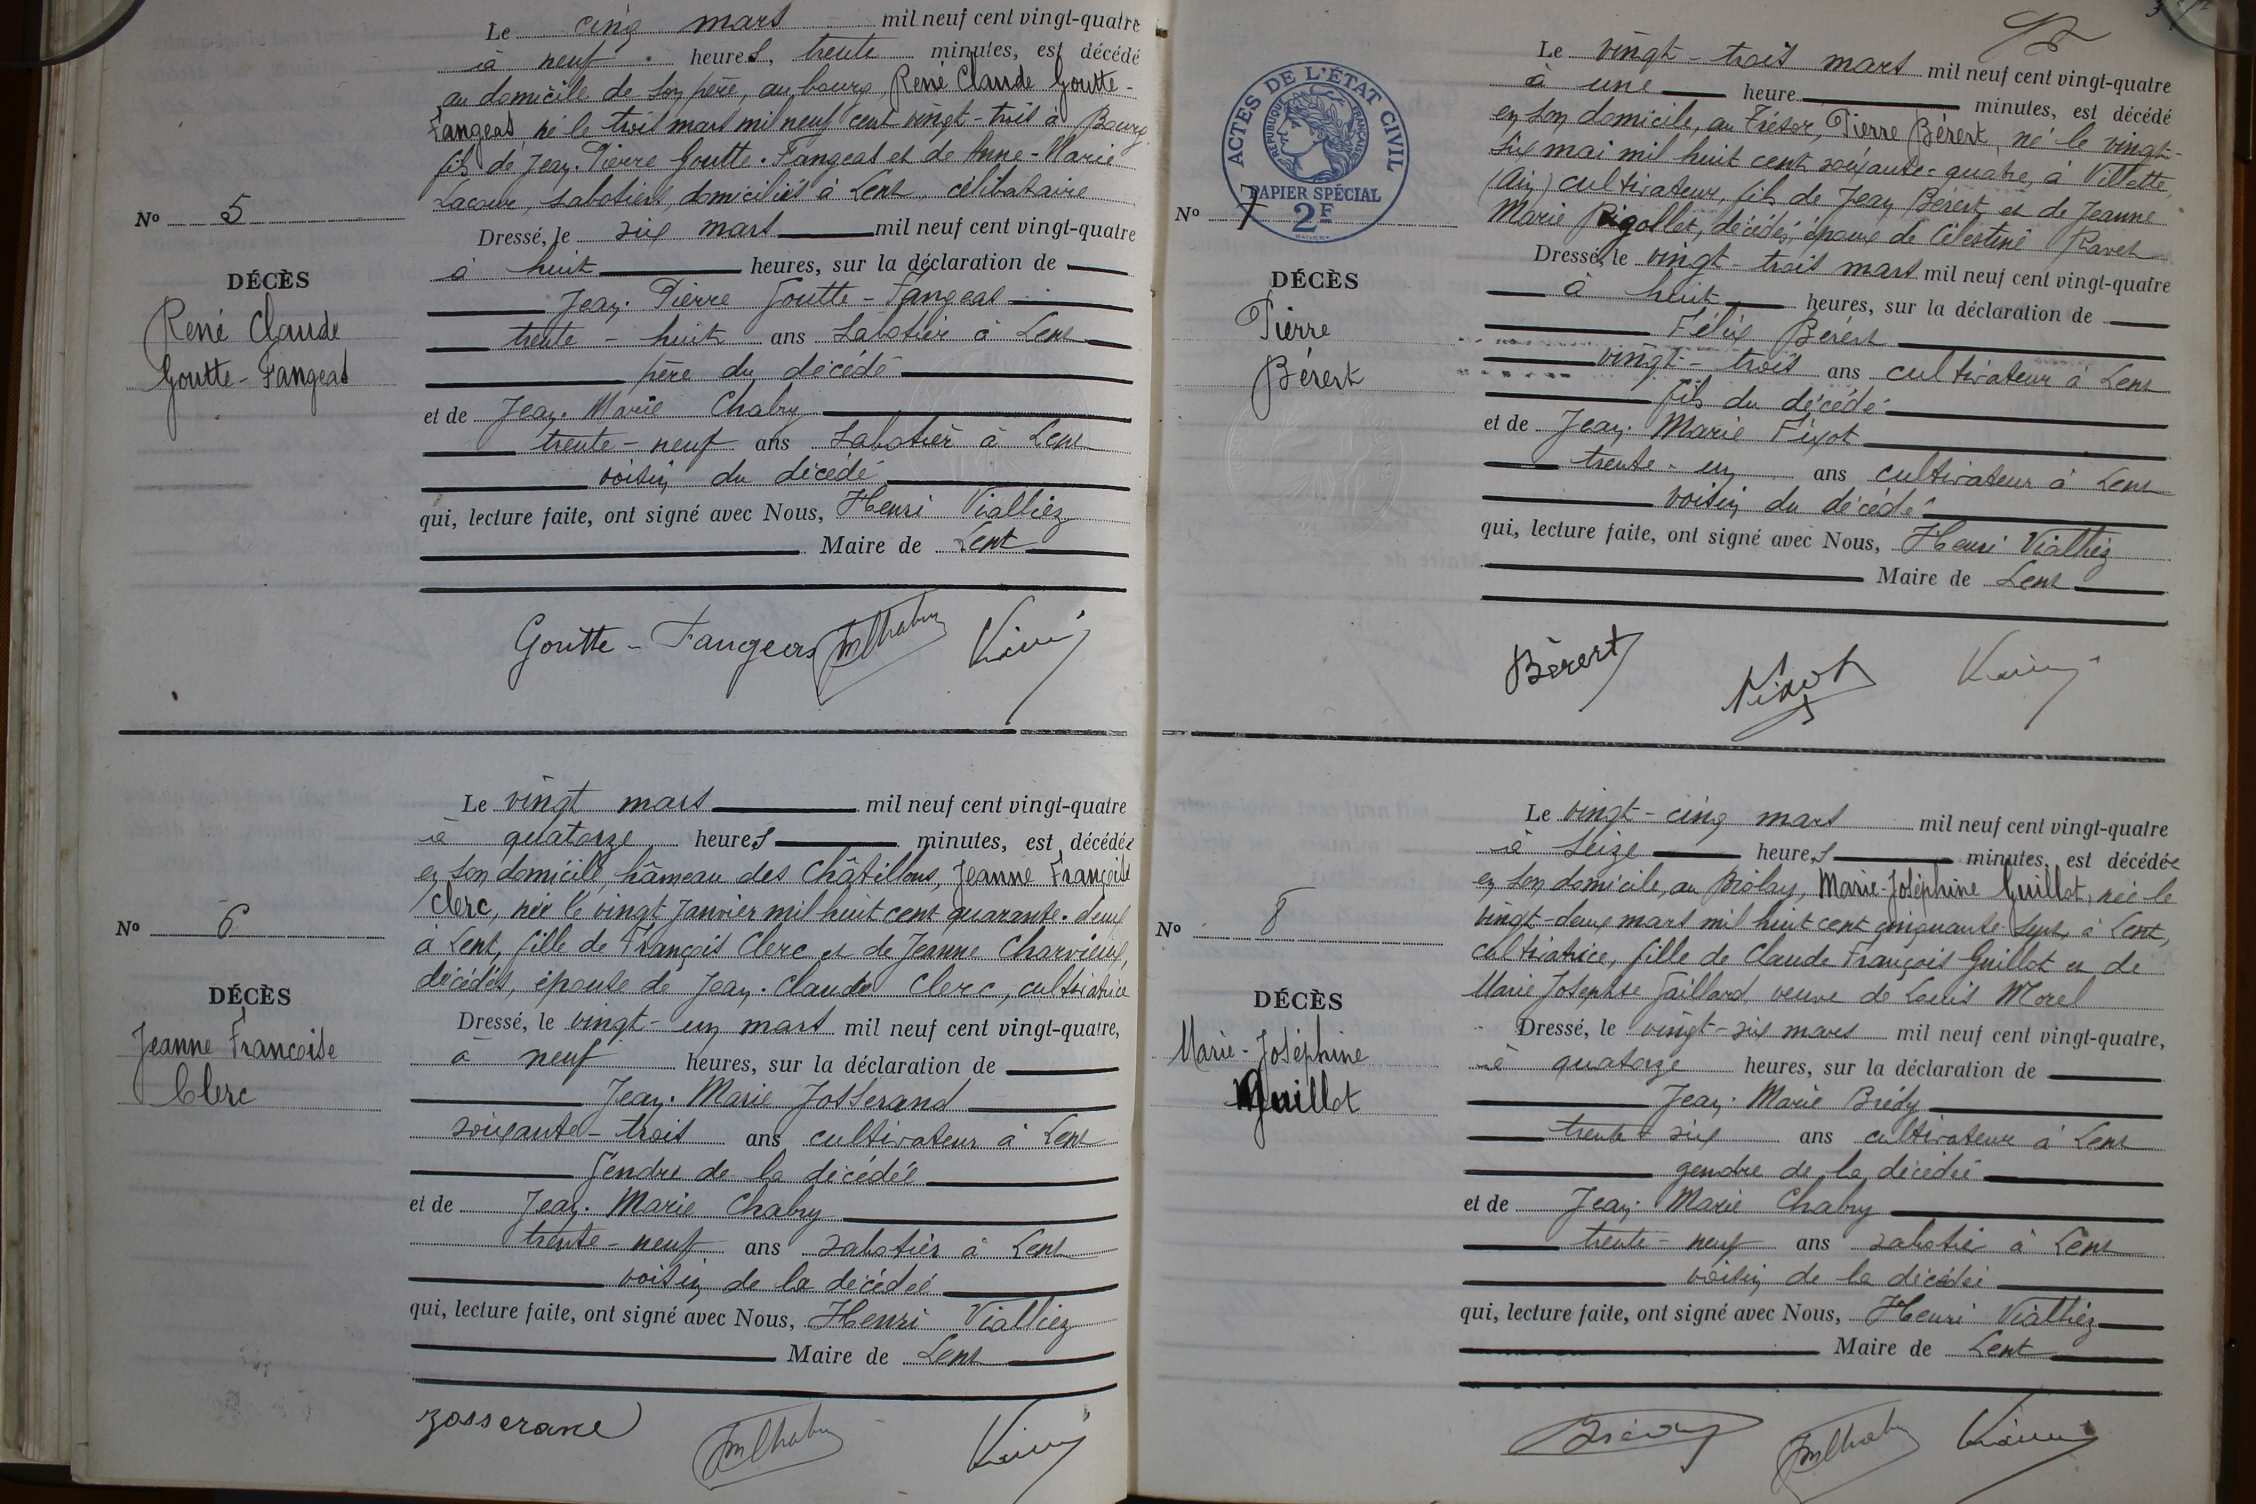 Le cinq mars mil neuf cent vingt-quatre
à neuf heures, trente minutes, est décédé
au domicile de son père, au bourg, René Claude Goutte-
Fangeas, né le trois mars mil neuf cent vingt-trois à Bourg
fils de Jean-Pierre Goutte-Fangeas et de Anne-Marie
Lacour, sabotiers, domiciliés à Lent, célibataire
No 5
Dressé, le six mars mil neuf cent vingt-quatre
à huit heures, sur la déclaration de
DÉCÈS
René Claude
Goutte-Fangeas
Jean-Pierre Goutte-Fangeas
trente-huit ans sabotier à Lent
père du décédé
et de Jean-Marie Chabry
trente-neuf ans sabotier à Lent
voisin du décédé
qui, lecture faite, ont signé avec Nous, Henri Vialliez
Maire de Lent
Goutte-Fangeas JMChabry
Le vingt mars mil neuf cent vingt-quatre
à quatorze heures minutes, est décédée
en son domicile, hâmeau des Châtillons, Jeanne Françoise
Clerc, née le vingt janvier mil huit cent quarante-deux
à Lent, fille de François Clerc et de Jeanne Charvieux,
décédés, épouse de Jean-Claude Clerc, cultivatrice
No 6
DÉCÈS
Jeanne Francoise
Clerc
Dressé, le vingt-un mars mil neuf cent vingt-quatre,
à neuf heures, sur la déclaration de
Jean-Marie Josserand
soixante-trois ans cultivateur à Lent
gendre de la décédée
et de Jean-Marie Chabry
trente-neuf ans sabotier à Lent
voisin de la décédée
qui, lecture faite, ont signé avec Nous, Henri Vialliez
Maire de Lent
Josserand JMChabry
ACTES DE L'ÉTAT CIVIL
RÉPUBLIQUE FRANÇAISE
PAPIER SPÉCIAL
2F
Le vingt-trois mars mil neuf cent vingt-quatre
à une heure minutes, est décédé
en son domicile, au Trésor, Pierre Bérert, né le vingt-
six mai mil huit cent soixante-quatre, à Villette,
(Ain) cultivateur, fils de Jean Bérert et de Jeanne
Marie Rigollet, décédés, époux de Célestine Ravet
No 7
DÉCÈS
Pierre
Bérert
Dressé, le vingt-trois mars mil neuf cent vingt-quatre
à huit heures, sur la déclaration de
Félix Bérert
vingt-trois ans cultivateur à Lent
fils du décédé
et de Jean-Marie Fixot
trente-un ans cultivateur à Lent
voisin du décédé
qui, lecture faite, ont signé avec Nous, Henri Vialliez
Maire de Lent
Bérert Fixot
Le vingt-cinq mars mil neuf cent vingt-quatre
à seize heures minutes, est décédée
en son domicile, au Biolay, Marie-Joséphine Guillot, née le
vingt-deux mars mil huit cent cinquante-sept, à Lent,
cultivatrice, fille de Claude François Guillot et de
Marie Josephte Gaillard veuve de Louis Morel
No 8
DÉCÈS
Marie-Joséphine
Guillot
Dressé, le vingt-six mars mil neuf cent vingt-quatre,
à quatorze heures, sur la déclaration de
Jean-Marie Brédy
trente-six ans cultivateur à Lent
gendre de la décédée
et de Jean-Marie Chabry
trente-neuf ans sabotier à Lent
voisin de la décédée
qui, lecture faite, ont signé avec Nous, Henri Vialliez
Maire de Lent
JMChabry